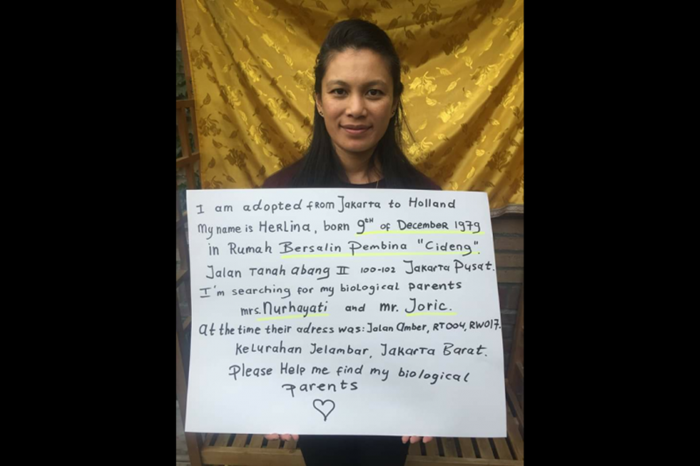 I am adopted from Jakarta to Holland
My name is Herlina, born 9th of December 1979
in Rumah Bersalin Pembina "Cideng".
Jalan Tanah abang II 100-102 Jakarta Pusat.
I'm searching for my biological parents
mrs. Nurhayati and mr. Joric.
At the time their adress was: Jalan Amber, RT004, RW017.
Kelurahan Jelambar, Jakarta Barat.
Please Help me find my biological
parents